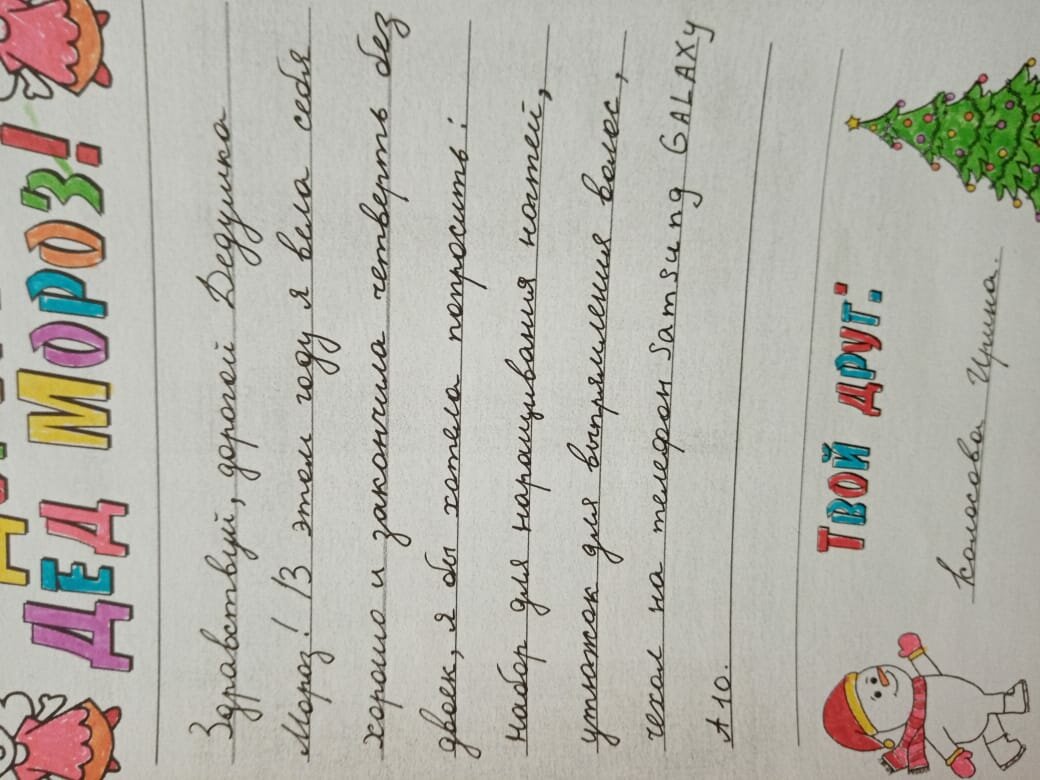 ДЕД МОРОЗ!
Здравствуй, дорогой Дедушка
Мороз! В этом году я вела себя
хорошо и закончила четверть без
двоек, я бы хотела попросить:
набор для наращивания ногтей,
утюжок для выпрямления волос,
чехол на телефон Samsung GALAXY
A10.
ТВОЙ ДРУГ:
Колосова Ирина.